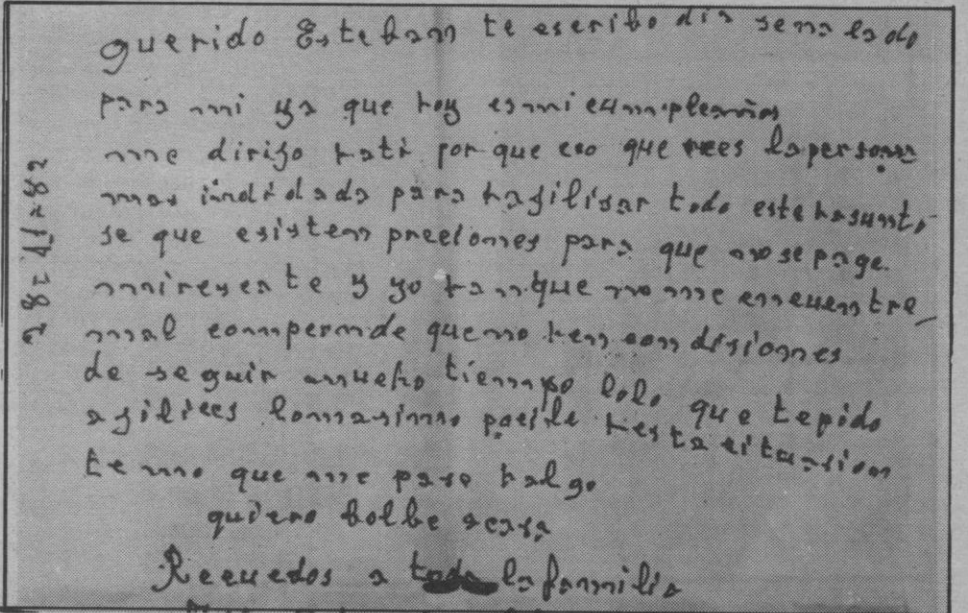 querido Esteban te escribo dia senalado
para mi ya que hoy esmicumpleaños
me dirijo hati por que creo que eres lapersona
mas indidada para hajilisar todo estehasunto
se que esisten preciones para que nosepage.
mireyente y yo hanque no me encuentre
mal compernde queno hen condisiones
de seguir mucho tiempo lolo que tepido
ajilices lomasimo posile hesta situasion
temo que me pase halgo
quiero bolbe acasa
Recuedos a toda la familia
28=11=82